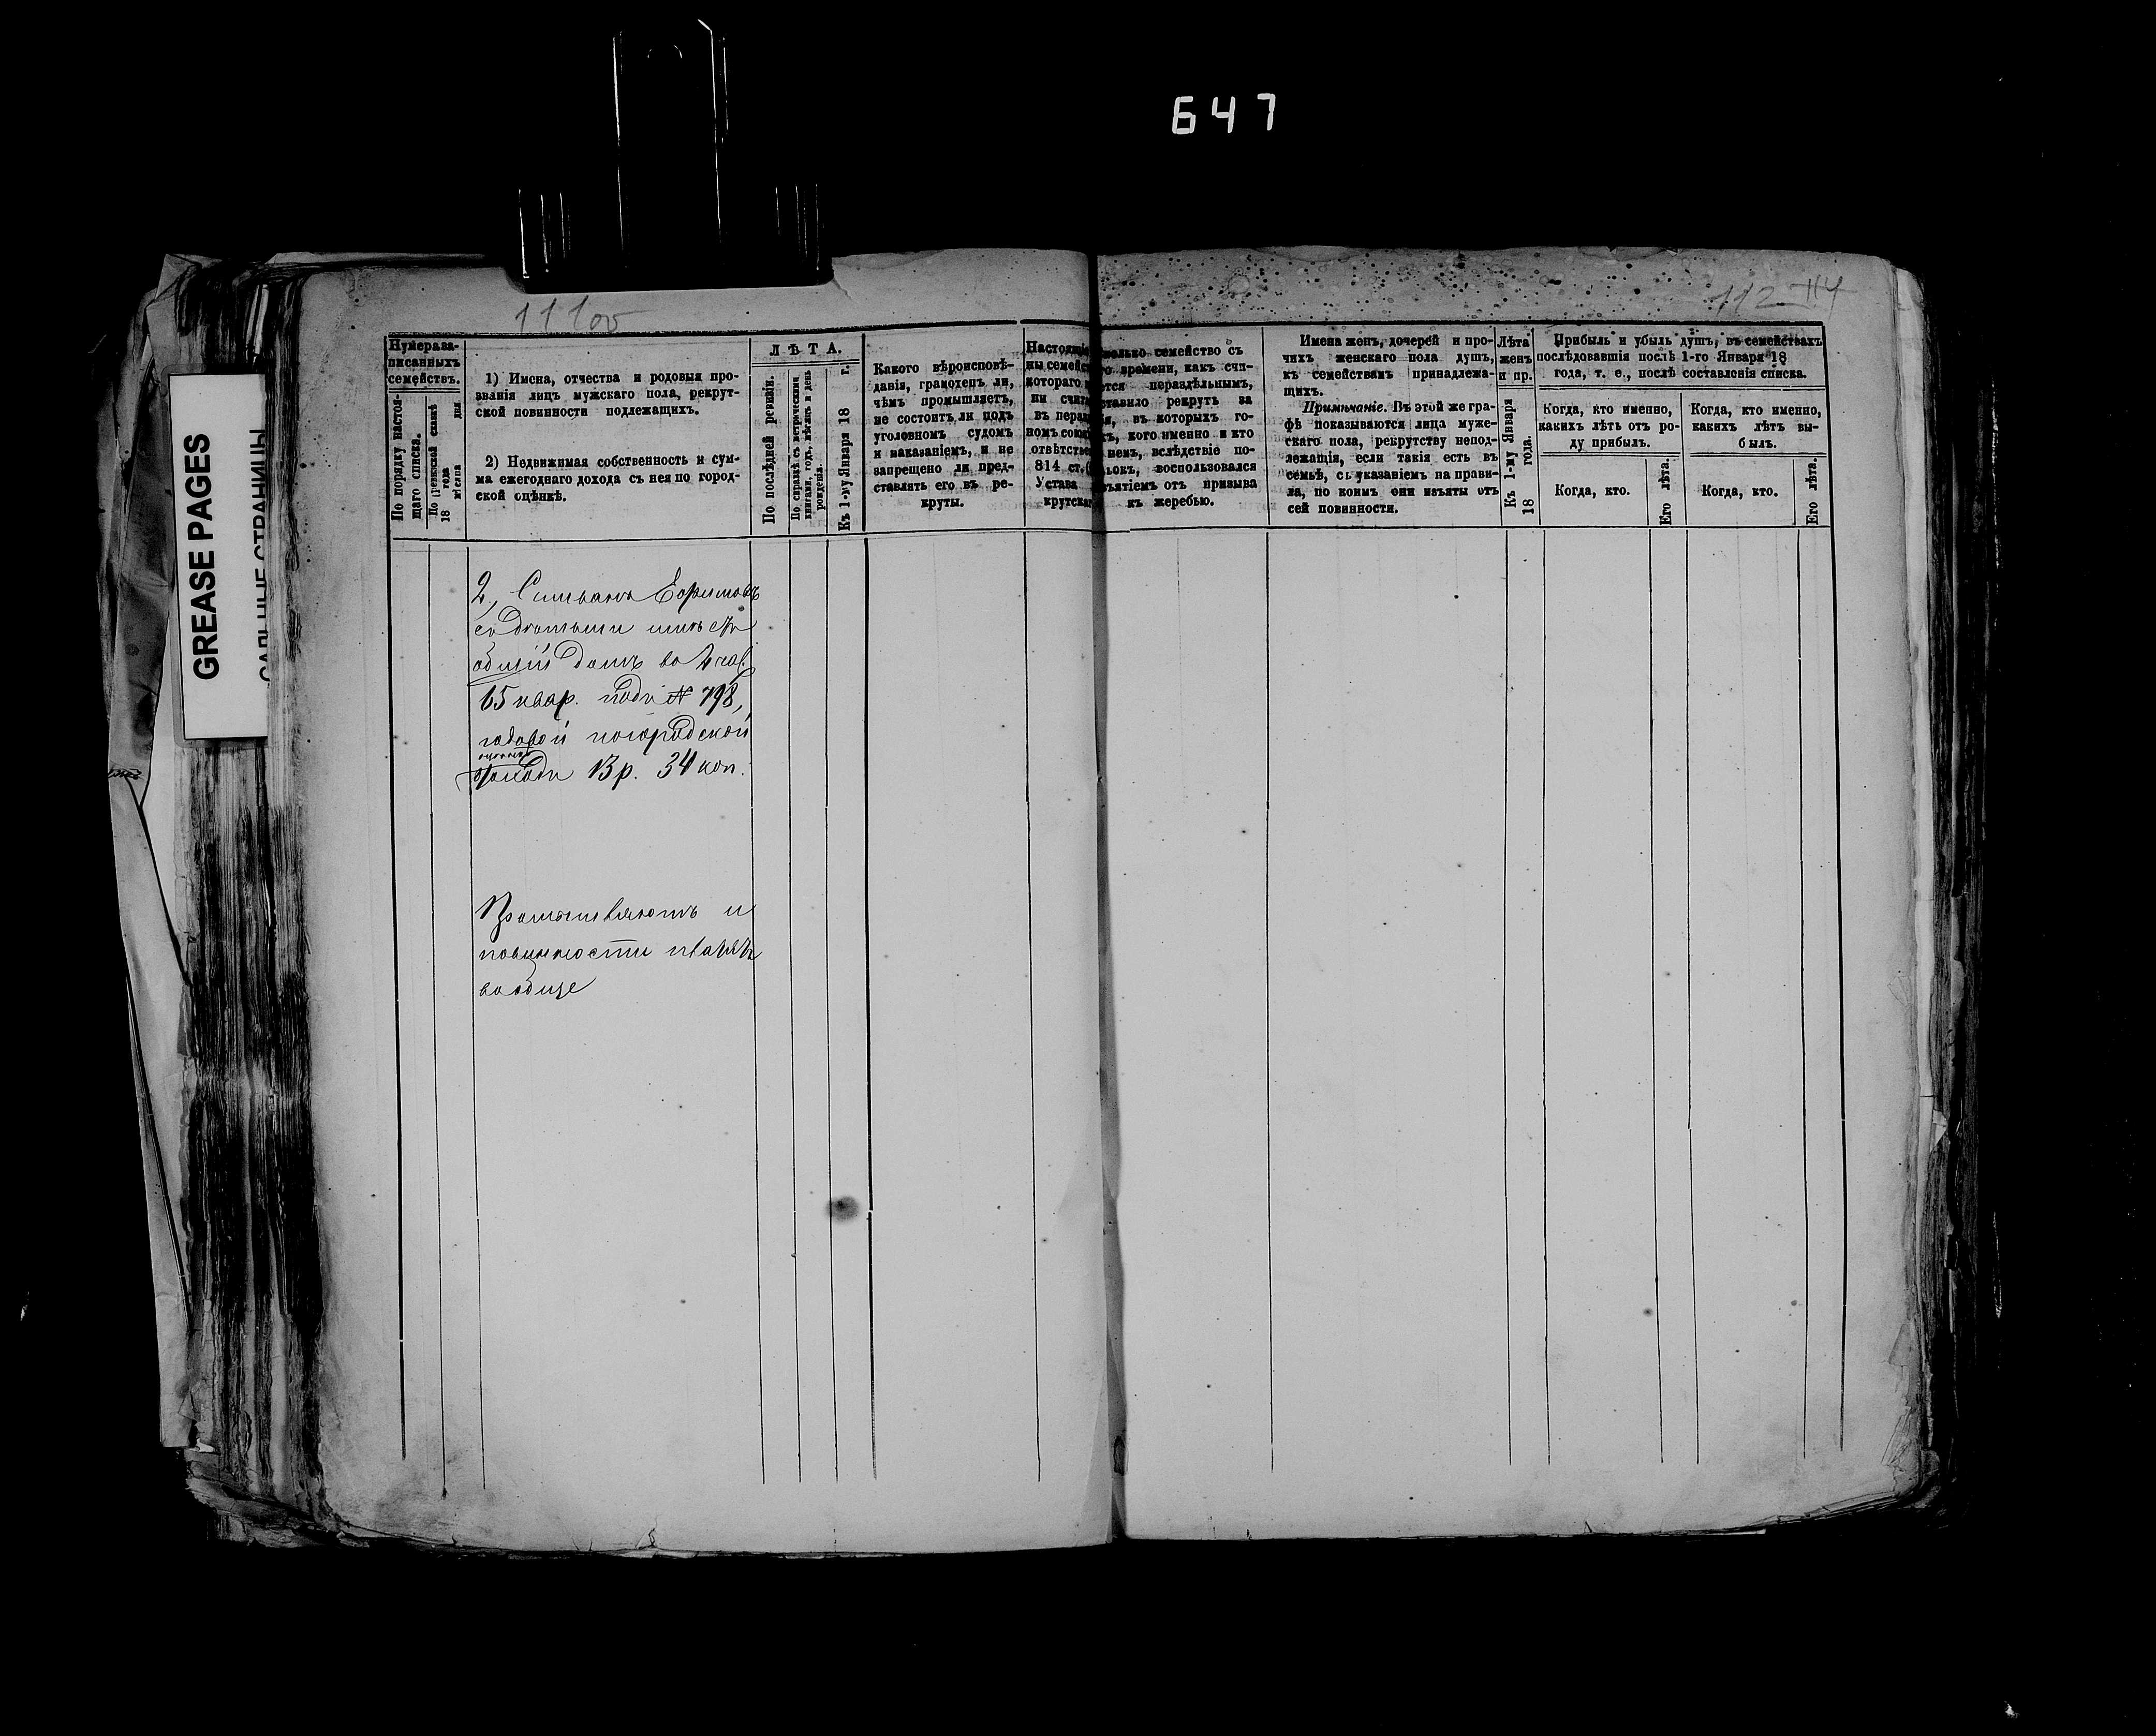 647
GREASE PAGES
САЛЬНЫЕ СТРАНИЦЫ
111об
112
114
Нумера за-
писанныхъ
семействъ.
По порядку настоя-
щаго списка.
По ревизской сказкѣ
18 года
мѣсяца дня
1) Имена, отчества и родовыя про-
званія лицъ мужскаго пола, рекрут-
ской повинности подлежащихъ.
2) Недвижимая собственность и сум-
ма ежегоднаго дохода съ нея по город-
ской оцѣнкѣ.
ЛѢТА.
По послѣдней ревизіи.
По справкѣ съ метрическими
книгами, годъ, мѣсяцъ и день
рожденія.
Къ 1-му Января 18 г.
Какого вѣроисповѣ-
данія, грамотенъ ли,
чѣмъ промышляетъ,
не состоитъ ли подъ
уголовномъ судомъ
и наказаніемъ, и не
запрещено ли пред-
ставлять его въ ре-
круты.
Настоящі
ны семейс
котораго
ни счита
въ нераз
номъ союз
отвѣтстве
814 ст.
Устава
крутска
олько семейство съ
го времени, какъ счи-
ется нераздѣльнымъ,
ставило рекрутъ за
я, въ которыхъ го-
хъ, кого именно и кто
немъ, вслѣдствіе по-
ьокъ, воспользовался
зъятіемъ отъ призыва
къ жеребью.
Имена женъ, дочерей и про-
чихъ женскаго пола душъ,
къ семействамъ принадлежа-
щихъ.
Примѣчаніе. Въ этой же гра-
фѣ показываются лица муже-
скаго пола, рекрутству непод-
лежащія, если такія есть въ
семьѣ, съ указаніемъ на прави-
ла, по коимъ они изъяты отъ
сей повинности.
Лѣта
женъ
и пр.
Къ 1-му Января
18 года.
Прибыль и убыль душъ, въ семействахъ
послѣдовавшія послѣ 1-го Января 18
года, т. е., послѣ составленія списка.
Когда, кто именно,
какихъ лѣтъ отъ ро-
ду прибылъ.
Когда, кто.
Его лѣта.
Когда, кто именно,
какихъ лѣтъ вы-
былъ.
Когда, кто.
Его лѣта.
2, Ефимовъ
общій домъ во 2 час.
15 квар. подъ № 798,
годовой погородской
оцѣнкѣ
13 р. 34 коп.
Промышляютъ и
повинности
вообще